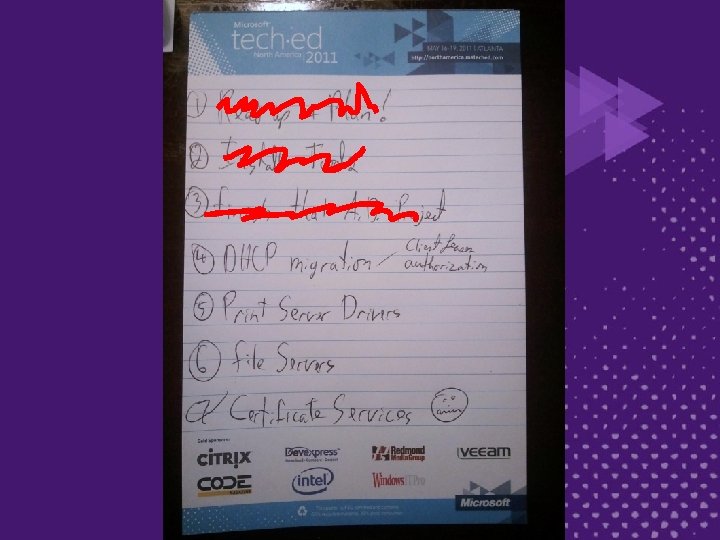 Microsoft
tech·ed
North America | 2011
MAY 16-19, 2011 | ATLANTA
http://northamerica.msteched.com
① Read up + Plan!
② Install Tools
③ Finish that A.D. Project
④ DHCP migration / Client Lease
authorization
⑤ Print Server Drivers
⑥ File Servers
Certificate Services
Gold sponsors:
CITRIX
DevExpress
Redmond
MediaGroup
veeam
CODE
MAGAZINE
intel
Windows IT Pro
Microsoft